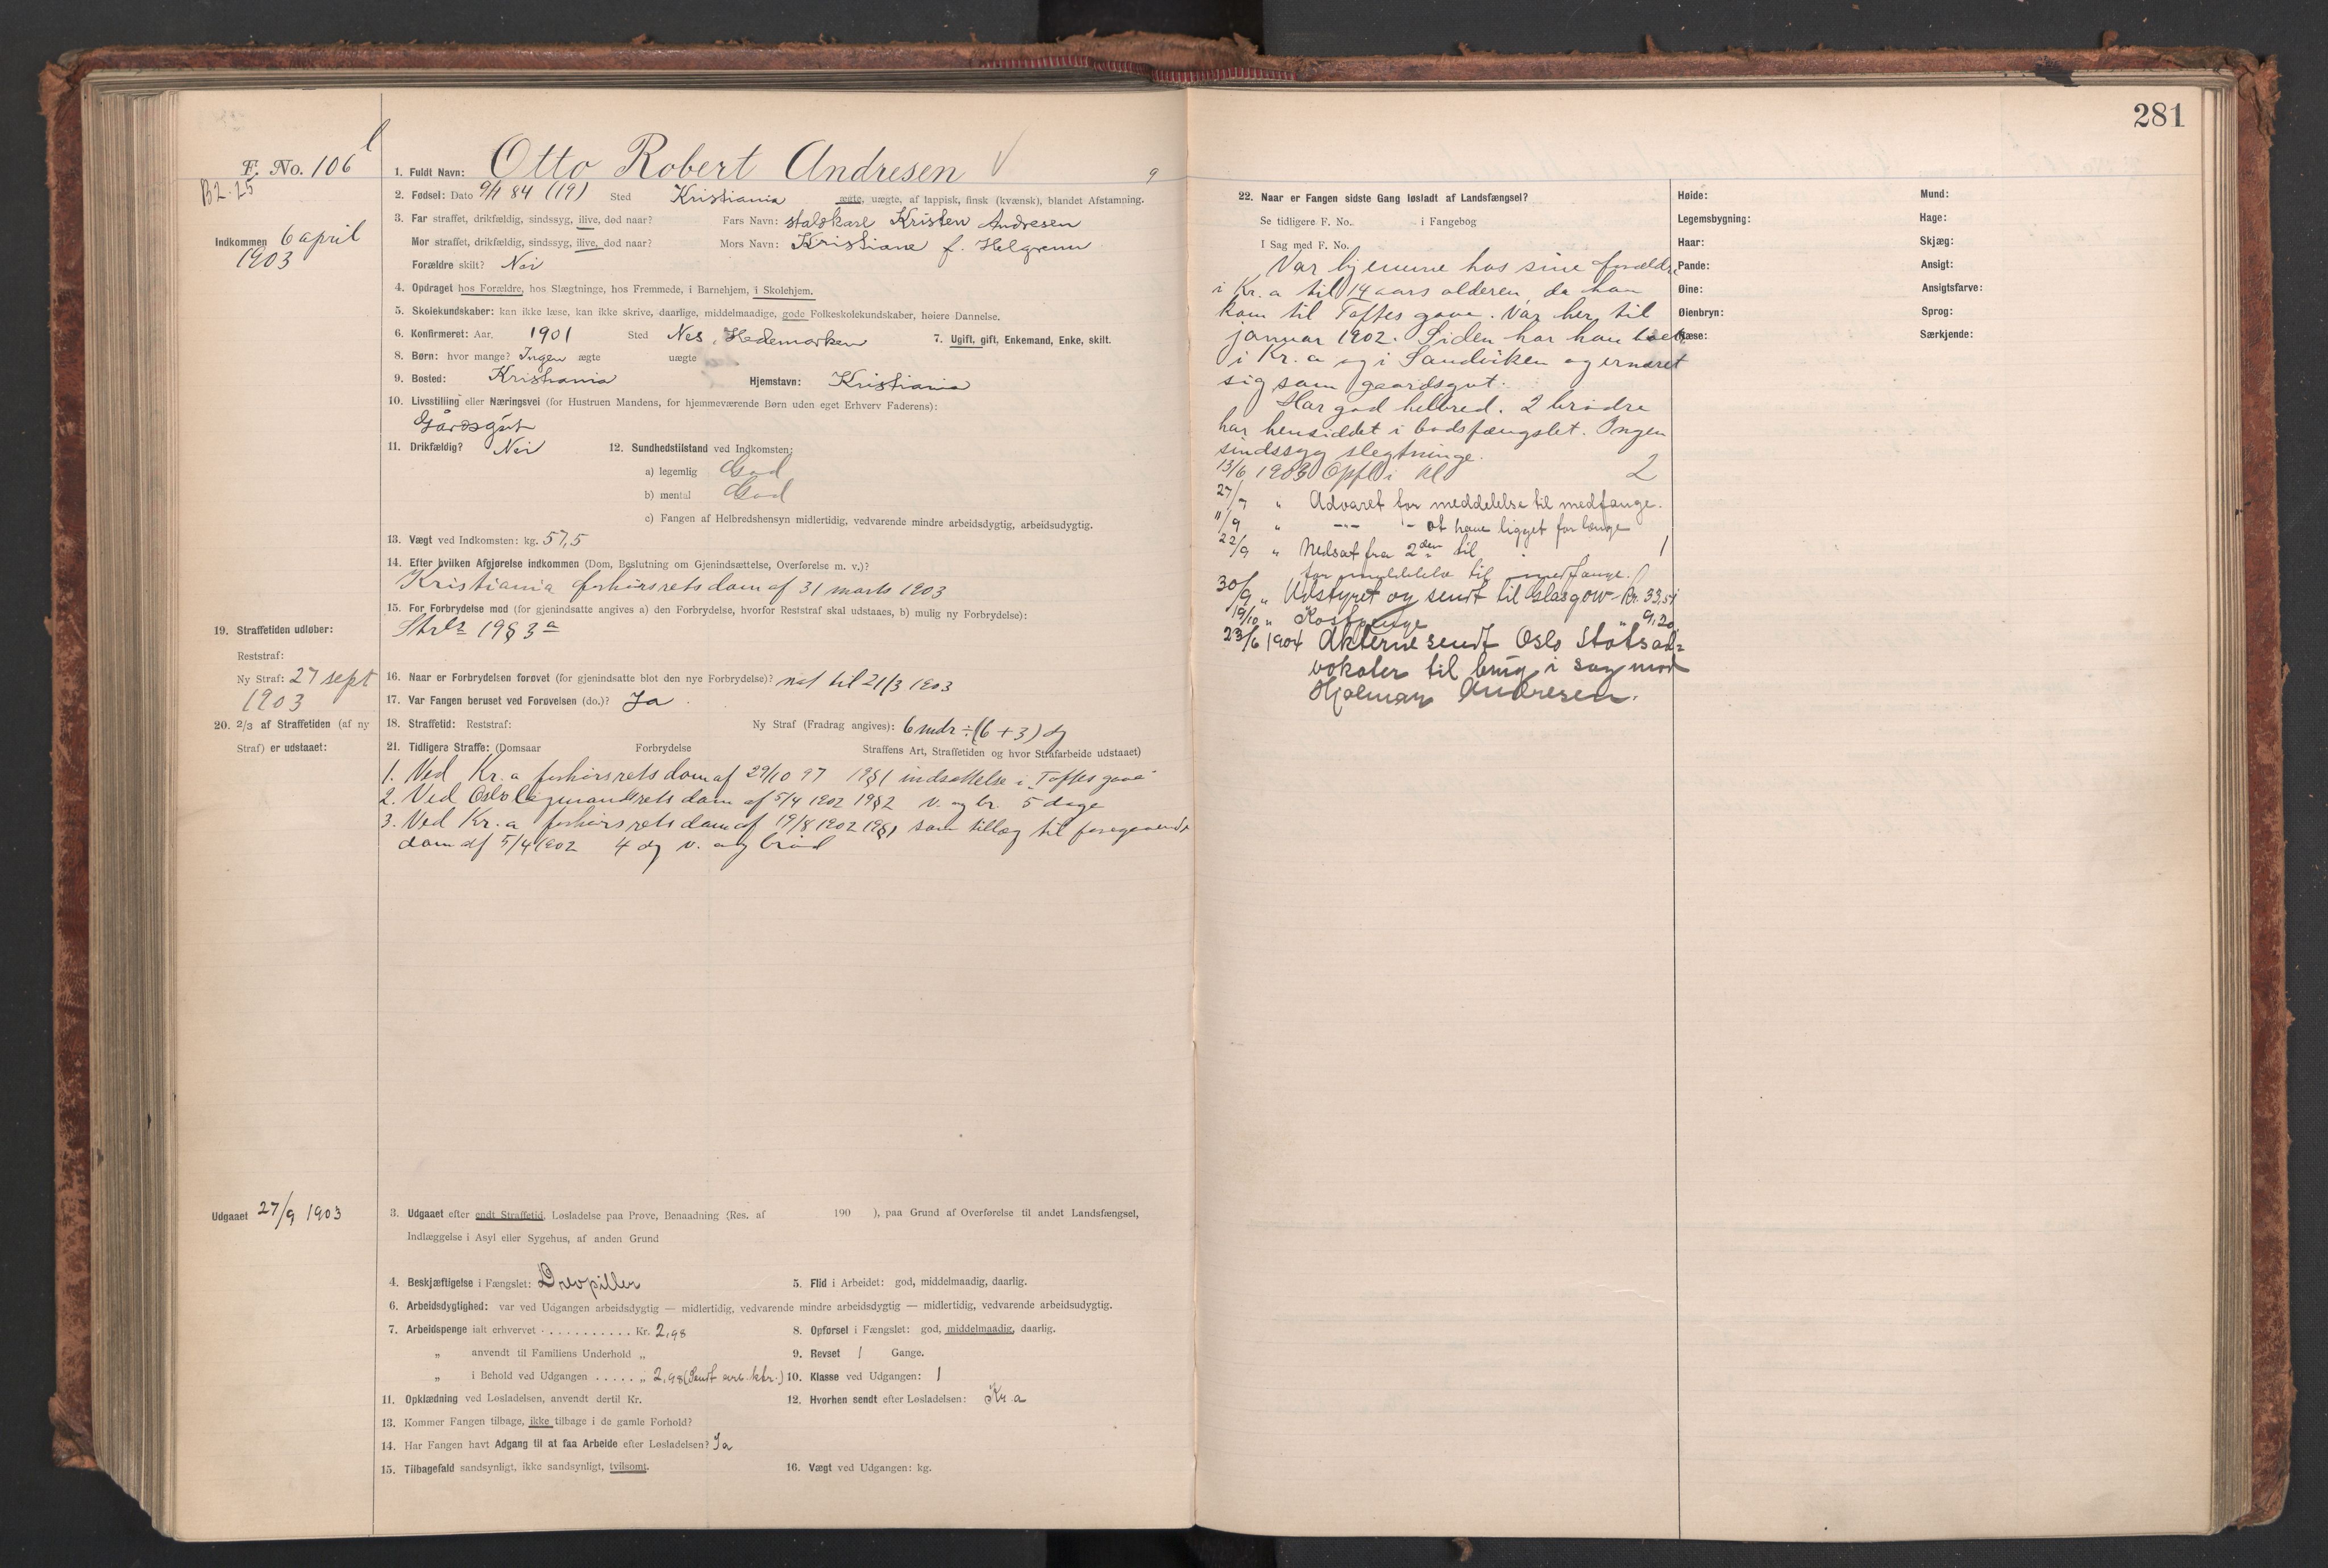 281
F. No. 106
B2.25
Indkommen 6 april
1903
1. Fuldt Navn: Otto Robert Andresen
9
2. Fødsel: Dato 9/1 84 (19) Sted Kristiania ægte, uægte, af lappisk, finsk (kvænsk), blandet Afstamning.
3. Far straffet, drikfældig, sindssyg, ilive, død naar? Fars Navn: staldkarl Kristen Andresen
Mor straffet, drikfældig, sindssyg, ilive, død naar? Mors Navn: Kristiane f. Helgrenn
Forældre skilt? Nei
4. Opdraget hos Forældre, hos Slægtninge, hos Fremmede, i Barnehjem, i Skolehjem.
5. Skolekundskaber: kan ikke læse, kan ikke skrive, daarlige, middelmaadige, gode Folkeskolekundskaber, høiere Dannelse.
6. Konfirmeret: Aar. 1901 Sted Nes, Hedemarken 7. Ugift, gift, Enkemand, Enke, skilt.
8. Børn: hvor mange? Ingen ægte uægte
9. Bosted: Kristiania Hjemstavn: Kristiania
10. Livsstilling eller Næringsvei (for Hustruen Mandens, for hjemmeværende Børn uden eget Erhverv Faderens):
Gårdsgut
11. Drikfældig? Nei 12. Sundhedstilstand ved Indkomsten:
a) legemlig God
b) mental God
c) Fangen af Helbredshensyn midlertidig, vedvarende mindre arbeidsdygtig, arbeidsudygtig.
13. Vægt ved Indkomsten: kg. 57,5
14. Efter hvilken Afgjørelse indkommen (Dom, Beslutning om Gjenindsættelse, Overførelse m. v.)?
Kristiania forhørsrets dom af 31 marts 1903
15. For Forbrydelse mod (for gjenindsatte angives a) den Forbrydelse, hvorfor Reststraf skal udstaaes, b) mulig ny Forbrydelse):
Strl 19 § 3 a
19. Straffetiden udløber:
Reststraf:
Ny Straf: 27 sept
1903
16. Naar er Forbrydelsen forøvet (for gjenindsatte blot den nye Forbrydelse)? nat til 21/3 1903
17. Var Fangen beruset ved Forøvelsen (do.)? Ja
20. 2/3 af Straffetiden (af ny
Straf) er udstaaet:
18. Straffetid: Reststraf: Ny Straf (Fradrag angives): 6 mdr ÷ (6 + 3) dg
21. Tidligere Straffe: (Domsaar Forbrydelse Straffens Art, Straffetiden og hvor Strafarbeide udstaaet)
1. Ved Kr.a forhørsrets dom af 29/10 97 19 § 1 indsættelse i "Toftes gave"
2. Ved Oslo lagmandsrets dom af 5/4 1902 19 § 2 v. og br. 5 dage
3. Ved Kr.a forhørsrets dom af 19/8 1902 19 § 1 som tillæg til foregaaende
dom af 5/4 1902 4 dg v. og brød
Udgaaet 27/9 1903
3. Udgaaet efter endt Straffetid, Løsladelse paa Prøve, Benaadning (Res. af 190 ), paa Grund af Overførelse til andet Landsfængsel,
Indlæggelse i Asyl eller Sygehus, af anden Grund
4. Beskjæftigelse i Fængslet: Drevpiller 5. Flid i Arbeidet: god, middelmaadig, daarlig.
6. Arbeidsdygtighed: var ved Udgangen arbeidsdygtig — midlertidig, vedvarende mindre arbeidsdygtig — midlertidig, vedvarende arbeidsudygtig.
7. Arbeidspenge ialt erhvervet . . . . . . . . . . . Kr. 2,98 8. Opførsel i Fængslet: god, middelmaadig, daarlig.
„ anvendt til Familiens Underhold „ 9. Revset 1 Gange.
„ i Behold ved Udgangen . . . . . „ 2,98 (Sendt 10. Klasse ved Udgangen: 1
11. Opklædning ved Løsladelsen, anvendt dertil Kr. 12. Hvorhen sendt efter Løsladelsen: Kr.a
13. Kommer Fangen tilbage, ikke tilbage i de gamle Forhold?
14. Har Fangen havt Adgang til at faa Arbeide efter Løsladelsen? Ja
15. Tilbagefald sandsynligt, ikke sandsynligt, tvilsomt. 16. Vægt ved Udgangen: kg.
22. Naar er Fangen sidste Gang løsladt af Landsfængsel?
Se tidligere F. No. i Fangebog
I Sag med F. No.
Var hjemme hos sine forældre
i Kr.a til 14 aars alderen, da han
kom til Toftes gave. Var her til
januar 1902. Siden har han boet
i Kr.a og i Sandviken og ernæret
sig som gaardsgut.
Har god helbred. 2 brødre
har hensiddet i bodsfængslet. Ingen
sindssyg slegtninge.
13/6 1903 Opfl i Kl 2
27/7 " Advaret for meddelelse til medfange.
11/9 " —"— - at have ligget for længe
22/9 " Nedsat fra 2den til 1
for meddelelse til medfange.
30/9 " Udstyret og sendt til Glasgow - Kr. 33,51
19/10 " Kostpenge " 9,20
23/6 1904 Akterne sendt Oslo Statsad=
vokater til brug i sag mod
Hjalmar Andresen.
Høide:
Legemsbygning:
Haar:
Pande:
Øine:
Øienbryn:
Næse:
Mund:
Hage:
Skjæg:
Ansigt:
Ansigtsfarve:
Sprog:
Særkjende: